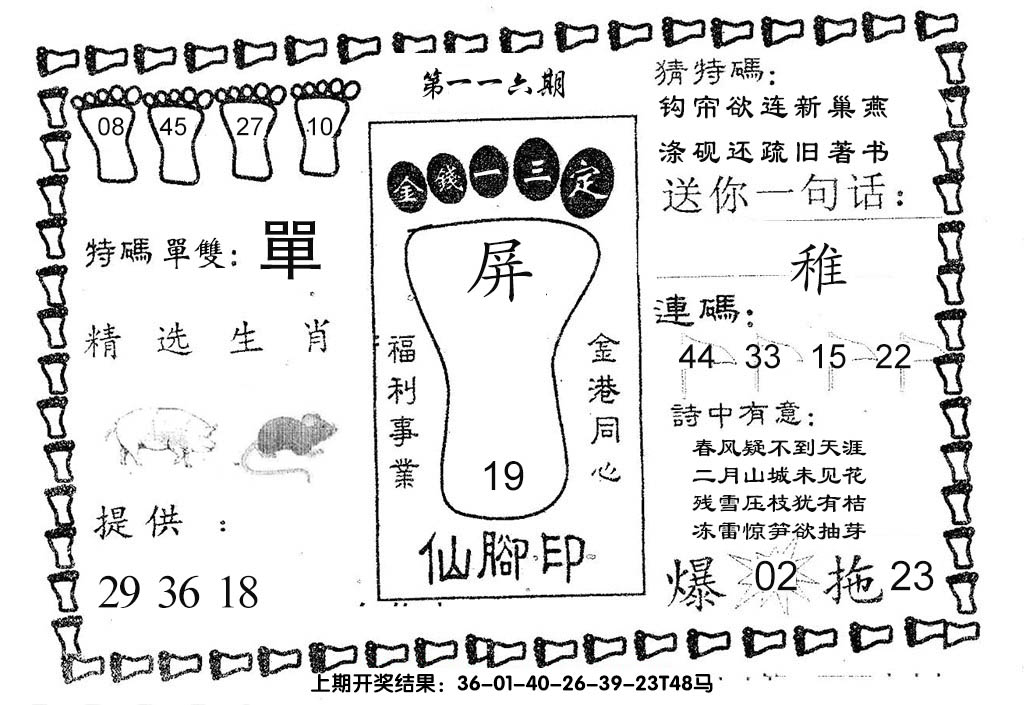 第一一六期
08 45 27 10
特碼單雙: 單
精选生肖
提供 :
29 36 18
金錢一三定
屏
福利事業
金港同心
19
仙腳印
猜特碼:
钩帘欲连新巢燕
涤砚还疏旧著书
送你一句话:
稚
連碼:
44 33 15 22
詩中有意:
春风疑不到天涯
二月山城未见花
残雪压枝犹有桔
冻雷惊笋欲抽芽
爆 02 拖 23
上期开奖结果：36-01-40-26-39-23T48马